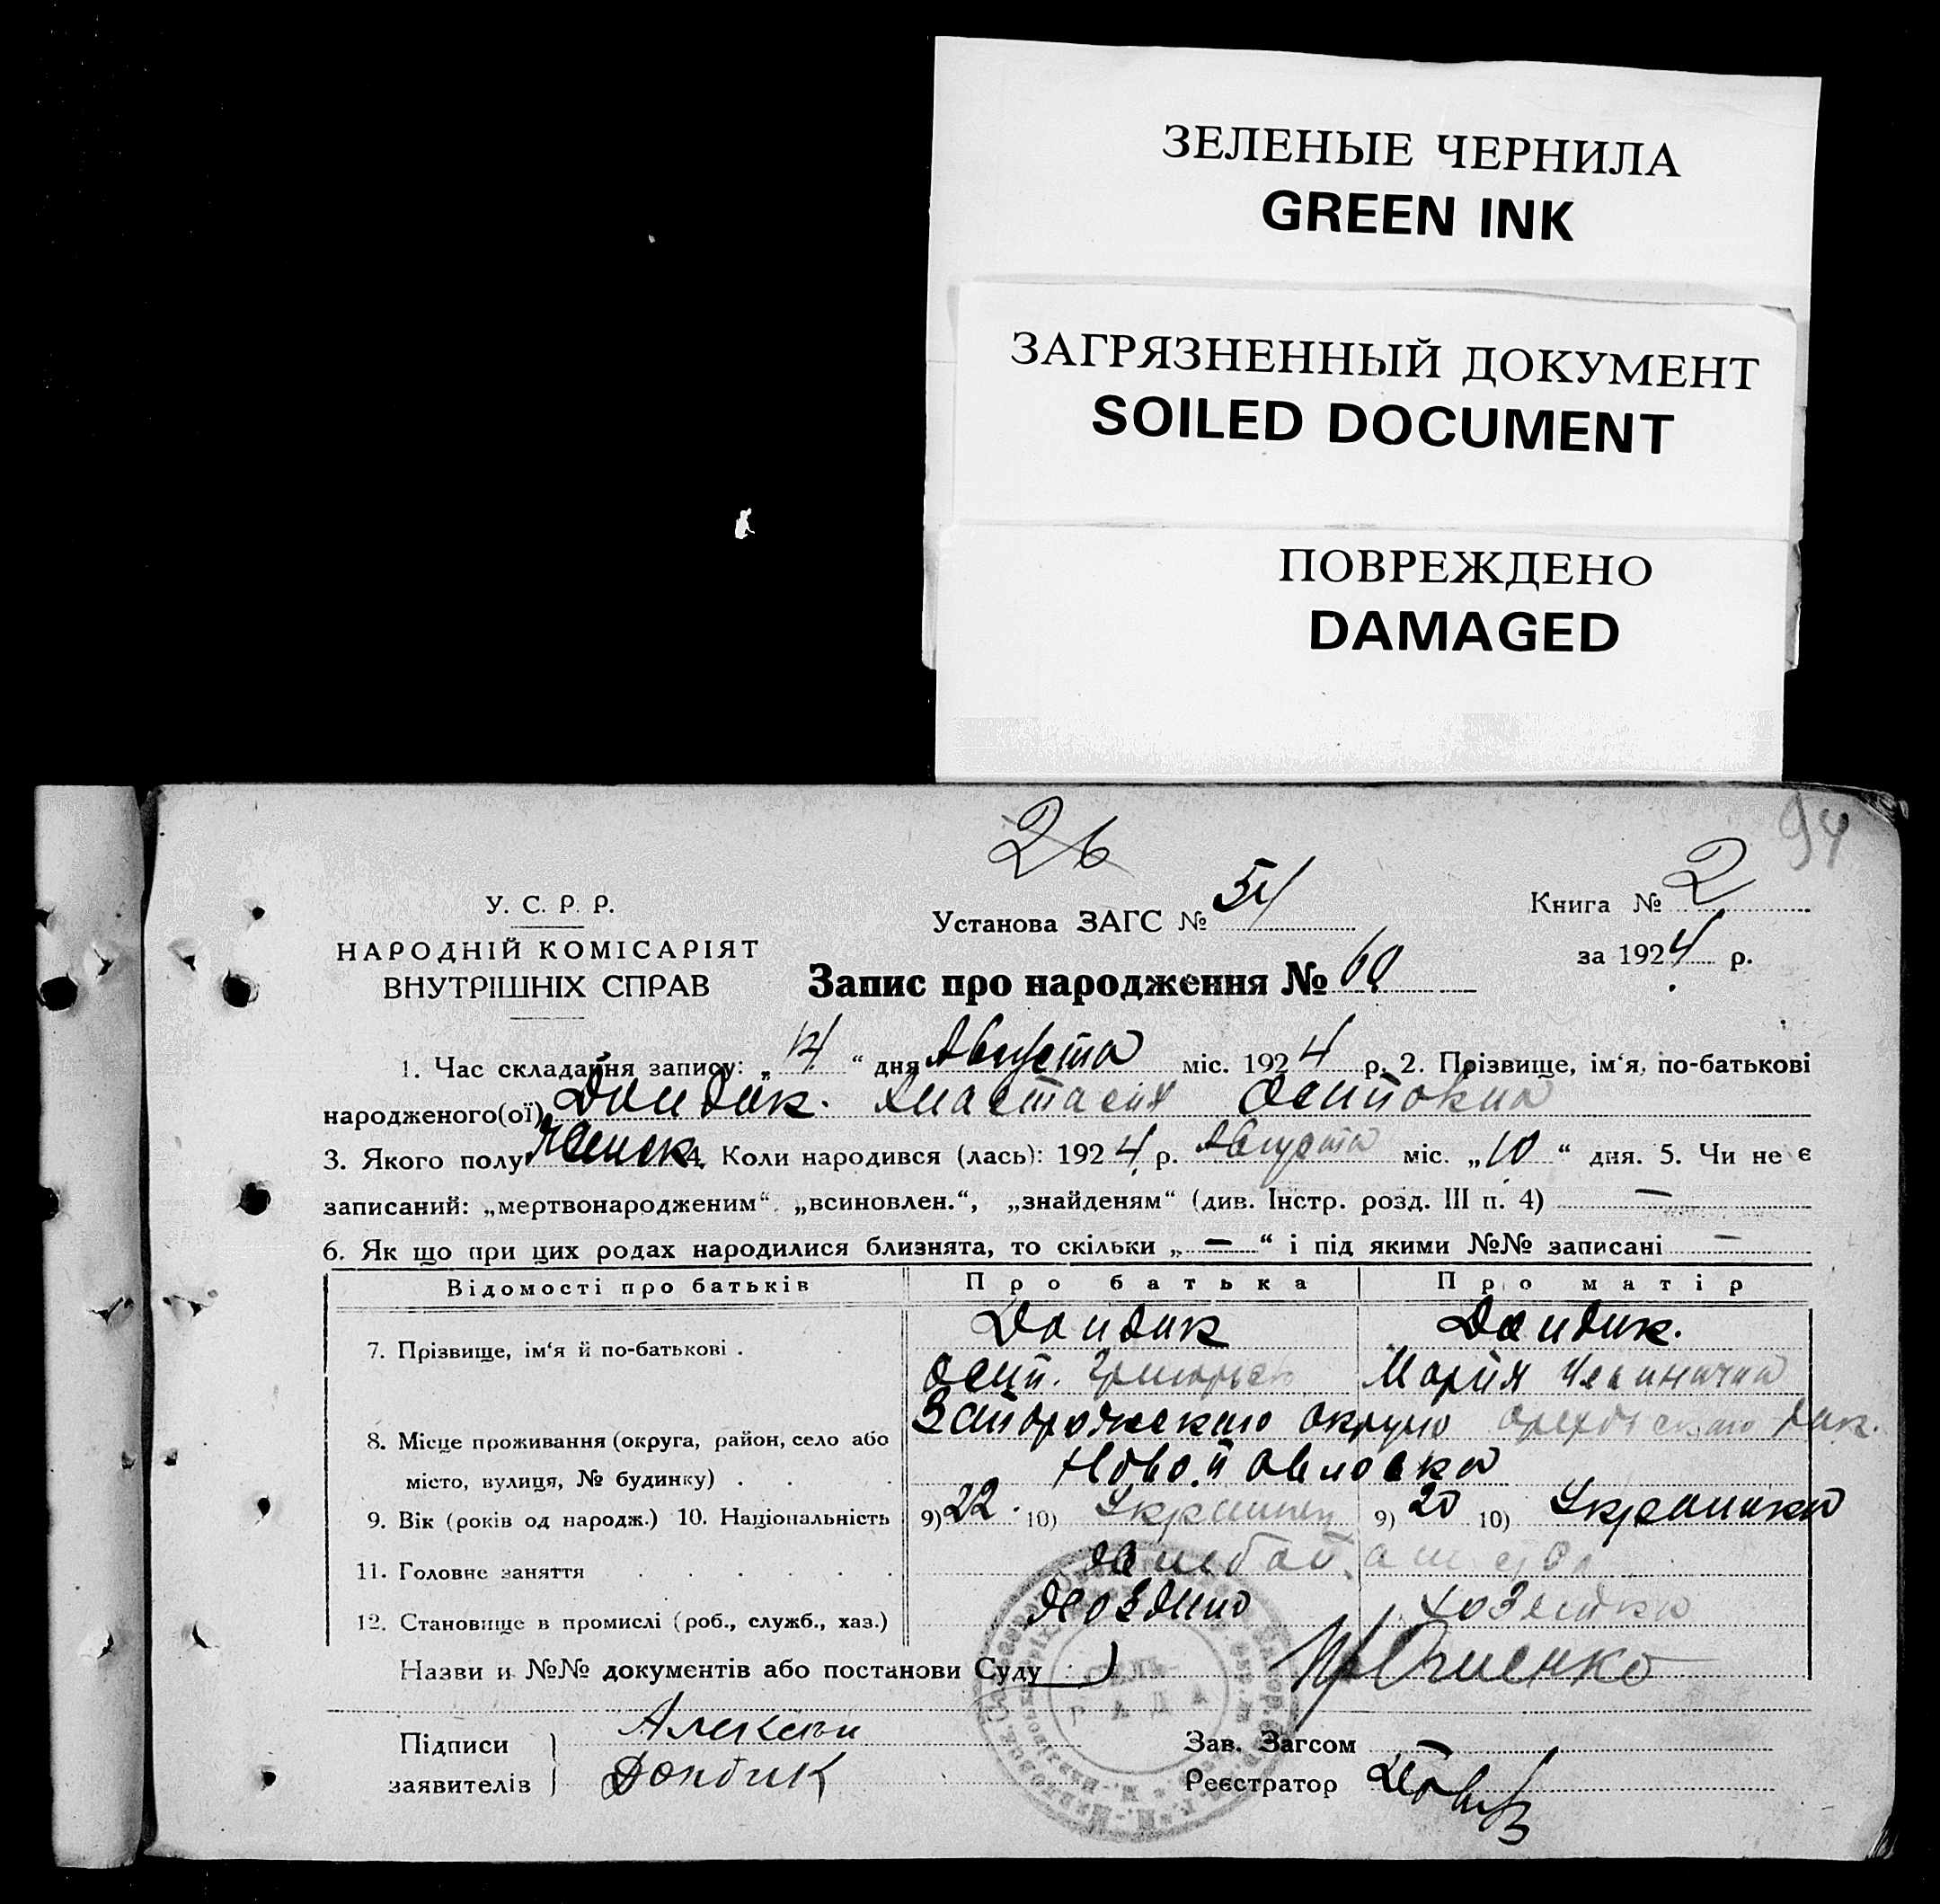 ЗЕЛЕНЫЕ ЧЕРНИЛА
GREEN INK
ЗАГРЯЗНЕННЫЙ ДОКУМЕНТ
SOILED DOCUMENT
ПОВРЕЖДЕНО
DAMAGED
26
94
У. С. Р. Р.
Установа ЗАГС № 54
Книга № 2
НАРОДНІЙ КОМІСАРІЯТ
за 1924 р.
ВНУТРІШНІХ СПРАВ
Запис про народження № 60
1. Час складання запису: „14“ дня Августа міс. 1924 р. 2. Прізвище, ім‘я, по-батькові
народженого(ої) Дондик. Анастасия Осиповна
3. Якого полу женск. 4. Коли народився (лась): 1924 р. Августа міс. „10“ дня. 5. Чи не є
записаний: „мертвонародженим“, „всиновлен.“, „знайденям“ (див. Інстр. розд. III п. 4) —
6. Як що при цих родах народилися близнята, то скільки „—“ і під якими №№ записані —
Відомості про батьків Про батька Про матір
7. Прізвище, ім‘я й по-батькові . Дондик Дондик.
Осип. Мария
8. Місце проживання (округа, район, село або Запорожскаго округа
місто, вулиця, № будинку) . . . Новопавловка
9. Вік (років од народж.) 10. Національність 9) 22. 10) Украинец 9) 20 10) Украинка
11. Головне заняття . . . . . .
12. Становище в промислі (роб., служб., хаз.) хозяйка
Назви и №№ документів або постанови Суду
СЕЛЬ-
РАДА
Підписи Алексей Зав. Загсом
заявителів Дондик Реєстратор